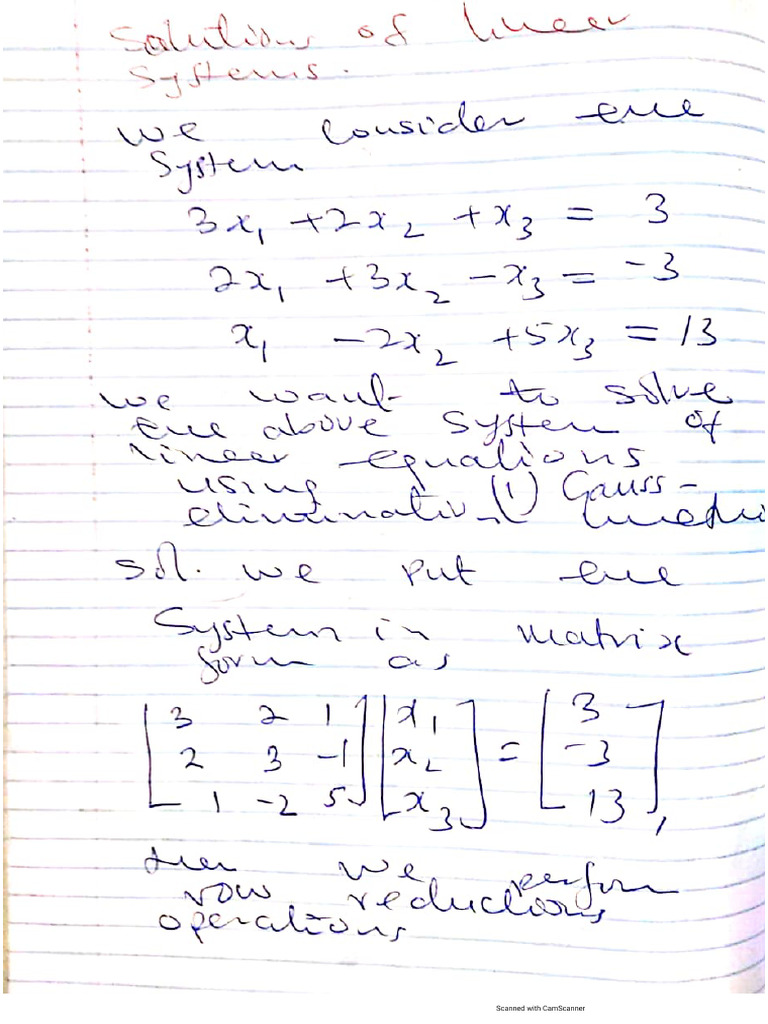 Solutions of linear
systems.
we consider the
system
3x₁ + 2x₂ + x₃ = 3
2x₁ + 3x₂ - x₃ = -3
x₁ - 2x₂ + 5x₃ = 13
we want to solve
the above system of
linear equations
using (1) Gauss-
elimination
sol. we put the
system in matrix
form as
[3 2 1] [x₁] = [3]
[2 3 -1] [x₂] [-3]
[1 -2 5] [x₃] [13],
then we perform
row reductions
operations
Scanned with CamScanner